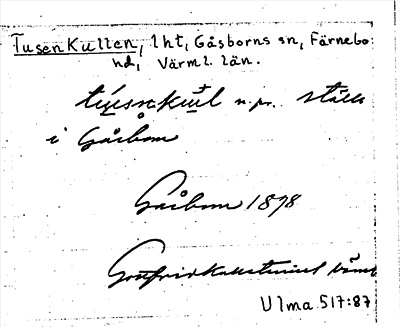 TusenKullen, lht, Gåsborns sn, Färnebo
hd, Värml. län.
n.pr. ställe
i Gåsborn
Gåsborn 1898
Gottfrid Kallstenius
Ulma 517:87